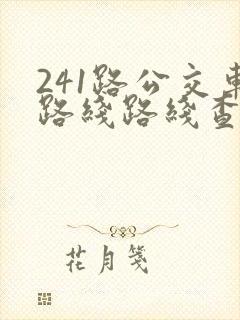 241路公交車
路綫路綫查
花月箋